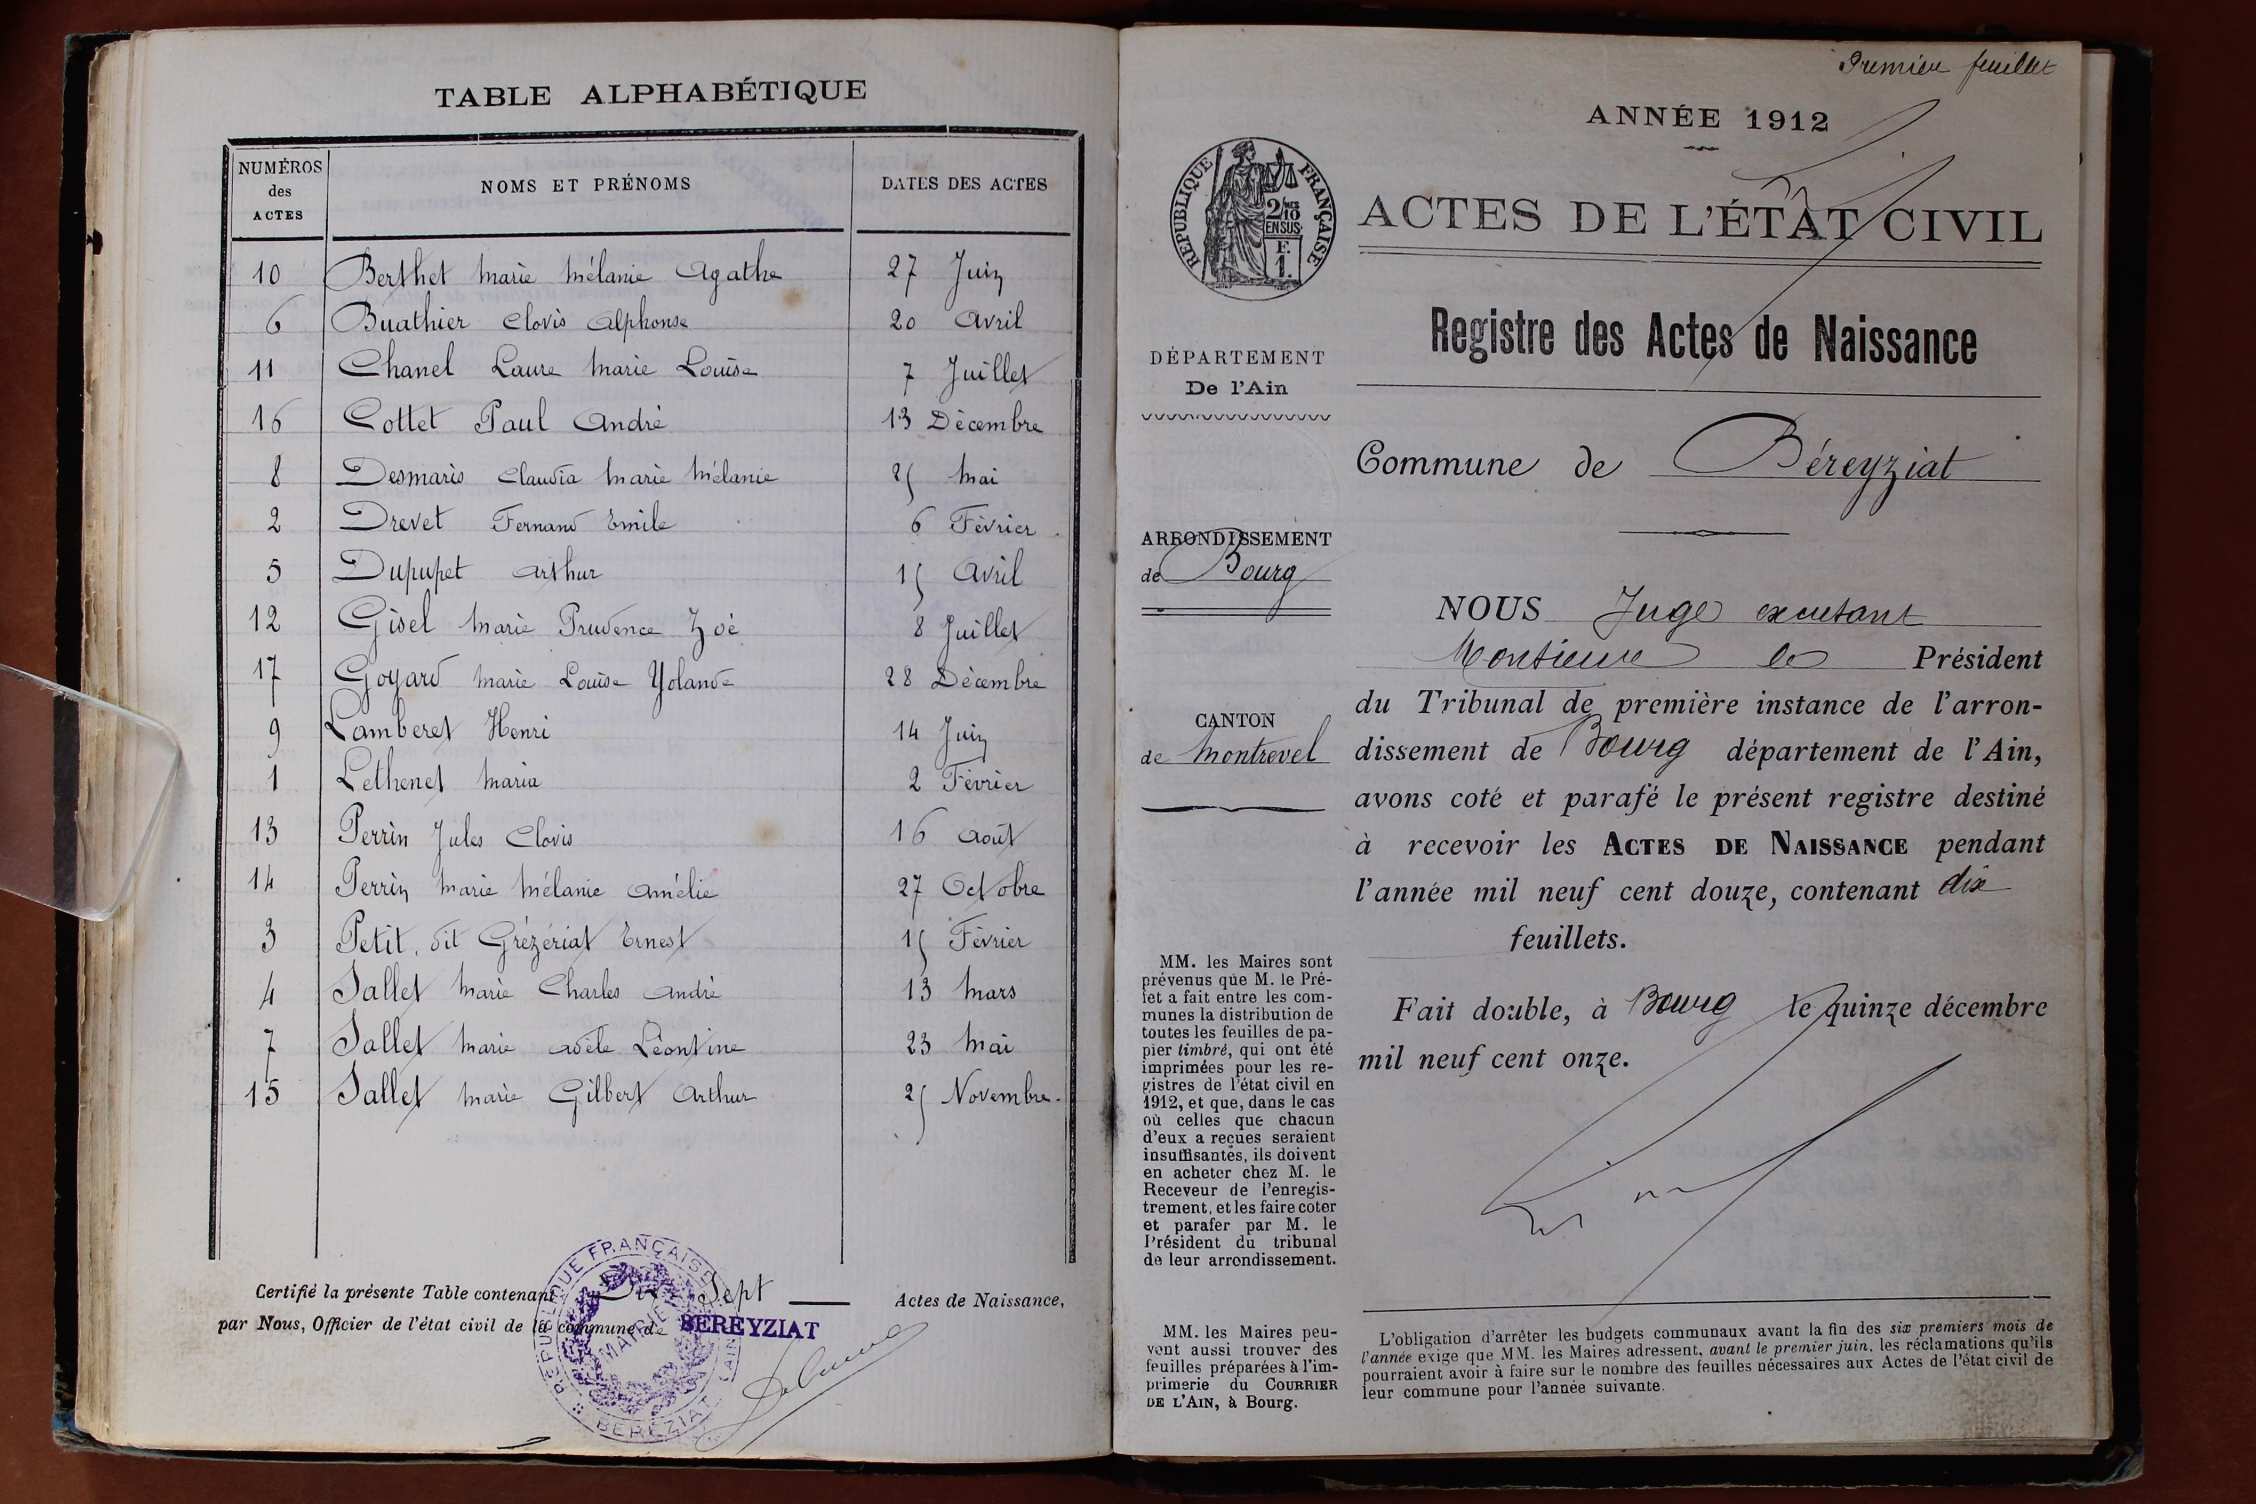 TABLE ALPHABÉTIQUE
NUMÉROS des ACTES NOMS ET PRÉNOMS DATES DES ACTES
10 Berthet Marie Mélanie Agathe 27 Juin
6 Buathier Clovis Alphonse 20 Avril
11 Chanel Laure Marie Louise 7 Juillet
16 Cottet Paul André 13 Décembre
8 Desmaris Claudia Marie Mélanie 25 Mai
2 Drevet Fernand Emile 6 Février
5 Dupupet Arthur 15 Avril
12 Gisel Marie Prudence Zoé 8 Juillet
17 Goyard Marie Louise Yolande 28 Décembre
9 Lamberet Henri 14 Juin
1 Lethenet Maria 2 Février
13 Perrin Jules Clovis 16 Août
14 Perrin Marie Mélanie Amélie 27 Octobre
3 Petit, dit Grézériat Ernest 15 Février
4 Sallet Marie Charles André 13 Mars
7 Sallet Marie Adèle Léontine 23 Mai
15 Sallet Marie Gilbert Arthur 25 Novembre
Certifié la présente Table contenant Dix Sept Actes de Naissance,
par Nous, Officier de l'état civil de la commune de BEREYZIAT
RÉPUBLIQUE FRANÇAISE
MAIRIE
BEREZIAT (AIN)
Premier feuillet
ANNÉE 1912
RÉPUBLIQUE FRANÇAISE
2/10 EN SUS
F. 1.
ACTES DE L'ÉTAT CIVIL
Registre des Actes de Naissance
DÉPARTEMENT
De l'Ain
Commune de Béreyziat
ARRONDISSEMENT
de Bourg
CANTON
de Montrevel
NOUS Juge excusant
Monsieur le Président
du Tribunal de première instance de l'arron-
dissement de Bourg département de l'Ain,
avons coté et parafé le présent registre destiné
à recevoir les ACTES DE NAISSANCE pendant
l'année mil neuf cent douze, contenant dix
feuillets.
Fait double, à Bourg le quinze décembre
mil neuf cent onze.
MM. les Maires sont
prévenus que M. le Pré-
fet a fait entre les com-
munes la distribution de
toutes les feuilles de pa-
pier timbré, qui ont été
imprimées pour les re-
gistres de l'état civil en
1912, et que, dans le cas
où celles que chacun
d'eux a reçues seraient
insuffisantes, ils doivent
en acheter chez M. le
Receveur de l'enregis-
trement, et les faire coter
et parafer par M. le
Président du tribunal
de leur arrondissement.
MM. les Maires peu-
vent aussi trouver des
feuilles préparées à l'im-
primerie du COURRIER
DE L'AIN, à Bourg.
L'obligation d'arrêter les budgets communaux avant la fin des six premiers mois de
l'année exige que MM. les Maires adressent, avant le premier juin, les réclamations qu'ils
pourraient avoir à faire sur le nombre des feuilles nécessaires aux Actes de l'état civil de
leur commune pour l'année suivante.